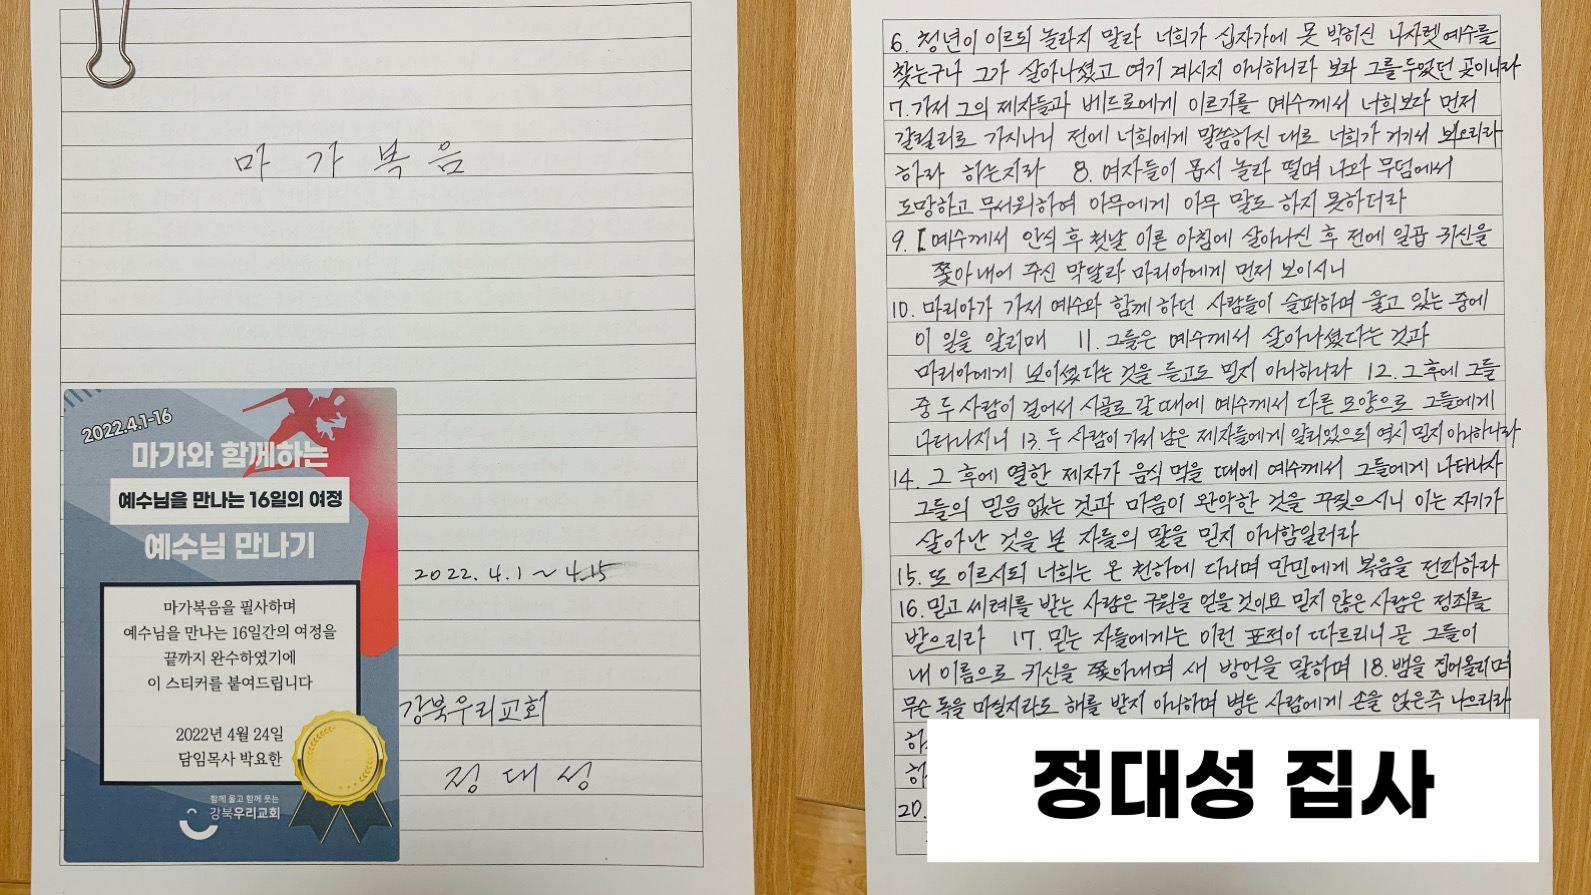 마 가 복 음
2022.4.1-16
마가와 함께하는
예수님을 만나는 16일의 여정
예수님 만나기
마가복음을 필사하며
예수님을 만나는 16일간의 여정을
끝까지 완수하였기에
이 스티커를 붙여드립니다
2022년 4월 24일
담임목사 박요한
함께 울고 함께 웃는
강북우리교회
2022. 4. 1 ~ 4.15
강북우리교회
정 대 성
6. 청년이 이르되 놀라지 말라 너희가 십자가에 못 박히신 나사렛 예수를
찾는구나 그가 살아나셨고 여기 계시지 아니하니라 보라 그를 두었던 곳이니라
7. 가서 그의 제자들과 베드로에게 이르기를 예수께서 너희보다 먼저
갈릴리로 가시나니 전에 너희에게 말씀하신 대로 너희가 거기서 뵈오리라
하라 하는지라 8. 여자들이 몹시 놀라 떨며 나와 무덤에서
도망하고 무서워하여 아무에게 아무 말도 하지 못하더라
9. [예수께서 안식 후 첫날 이른 아침에 살아나신 후 전에 일곱 귀신을
쫓아내어 주신 막달라 마리아에게 먼저 보이시니
10. 마리아가 가서 예수와 함께 하던 사람들이 슬퍼하며 울고 있는 중에
이 일을 알리매 11. 그들은 예수께서 살아나셨다는 것과
마리아에게 보이셨다는 것을 듣고도 믿지 아니하니라 12. 그 후에 그들
중 두 사람이 걸어서 시골로 갈 때에 예수께서 다른 모양으로 그들에게
나타나시니 13. 두 사람이 가서 남은 제자들에게 알리었으되 역시 믿지 아니하니라
14. 그 후에 열한 제자가 음식 먹을 때에 예수께서 그들에게 나타나사
그들의 믿음 없는 것과 마음이 완악한 것을 꾸짖으시니 이는 자기가
살아난 것을 본 자들의 말을 믿지 아니함일러라
15. 또 이르시되 너희는 온 천하에 다니며 만민에게 복음을 전파하라
16. 믿고 세례를 받는 사람은 구원을 얻을 것이요 믿지 않은 사람은 정죄를
받으리라 17. 믿는 자들에게는 이런 표적이 따르리니 곧 그들이
내 이름으로 귀신을 쫓아내며 새 방언을 말하며 18. 뱀을 집어올리며
무슨 독을 마실지라도 해를 받지 아니하며 병든 사람에게 손을 얹은즉 나으리라
20.
정대성 집사